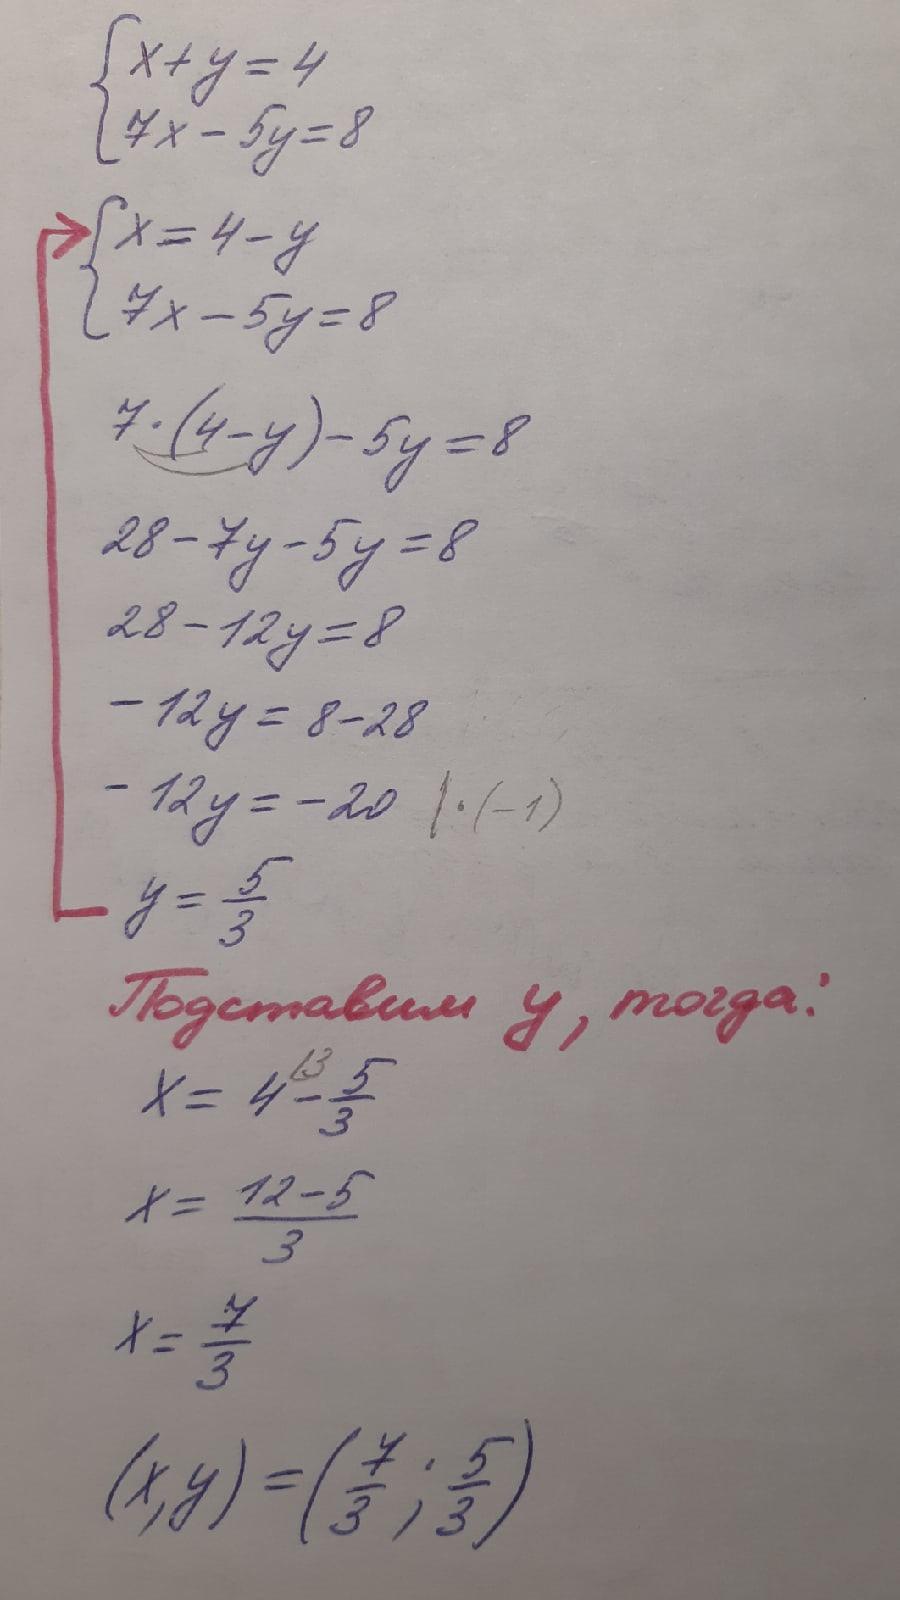 x+y=4
7x-5y=8
x=4-y
7x-5y=8
7·(4-y)-5y=8
28-7y-5y=8
28-12y=8
-12y=8-28
-12y=-20 |·(-1)
y=5/3
Подставим y, тогда:
x=4\3-5/3
x=12-5/3
x=7/3
(x,y)=(7/3;5/3)